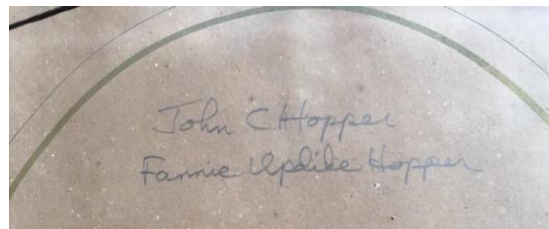 John C Hopper
Fannie Updike Hopper